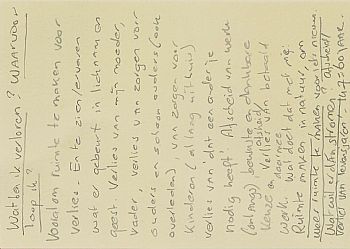 Wat ben ik verloren? Waarvoor
loop ik?
Vooral om ruimte te maken voor
verlies. En te zien/ervaren
wat er gebeurt in lichaam en
geest. Verlies van mijn moeder,
vader verlies van zorgen voor
ouders en schoonouders (ook
overleden), van zorgen voor
kinderen (al lang uit huis)
verlies van dat een ander je
nodig heeft. Afscheid van werk
(onlangs), bewuste en dankbare
keuze afscheid/
en daarmee Verlies van betaald
werk. Wat doet dat met mij
Ruimte maken in natuur, om
weer ruimte te maken voor de nieuw
Wat wil er dan stromen? Afscheid/